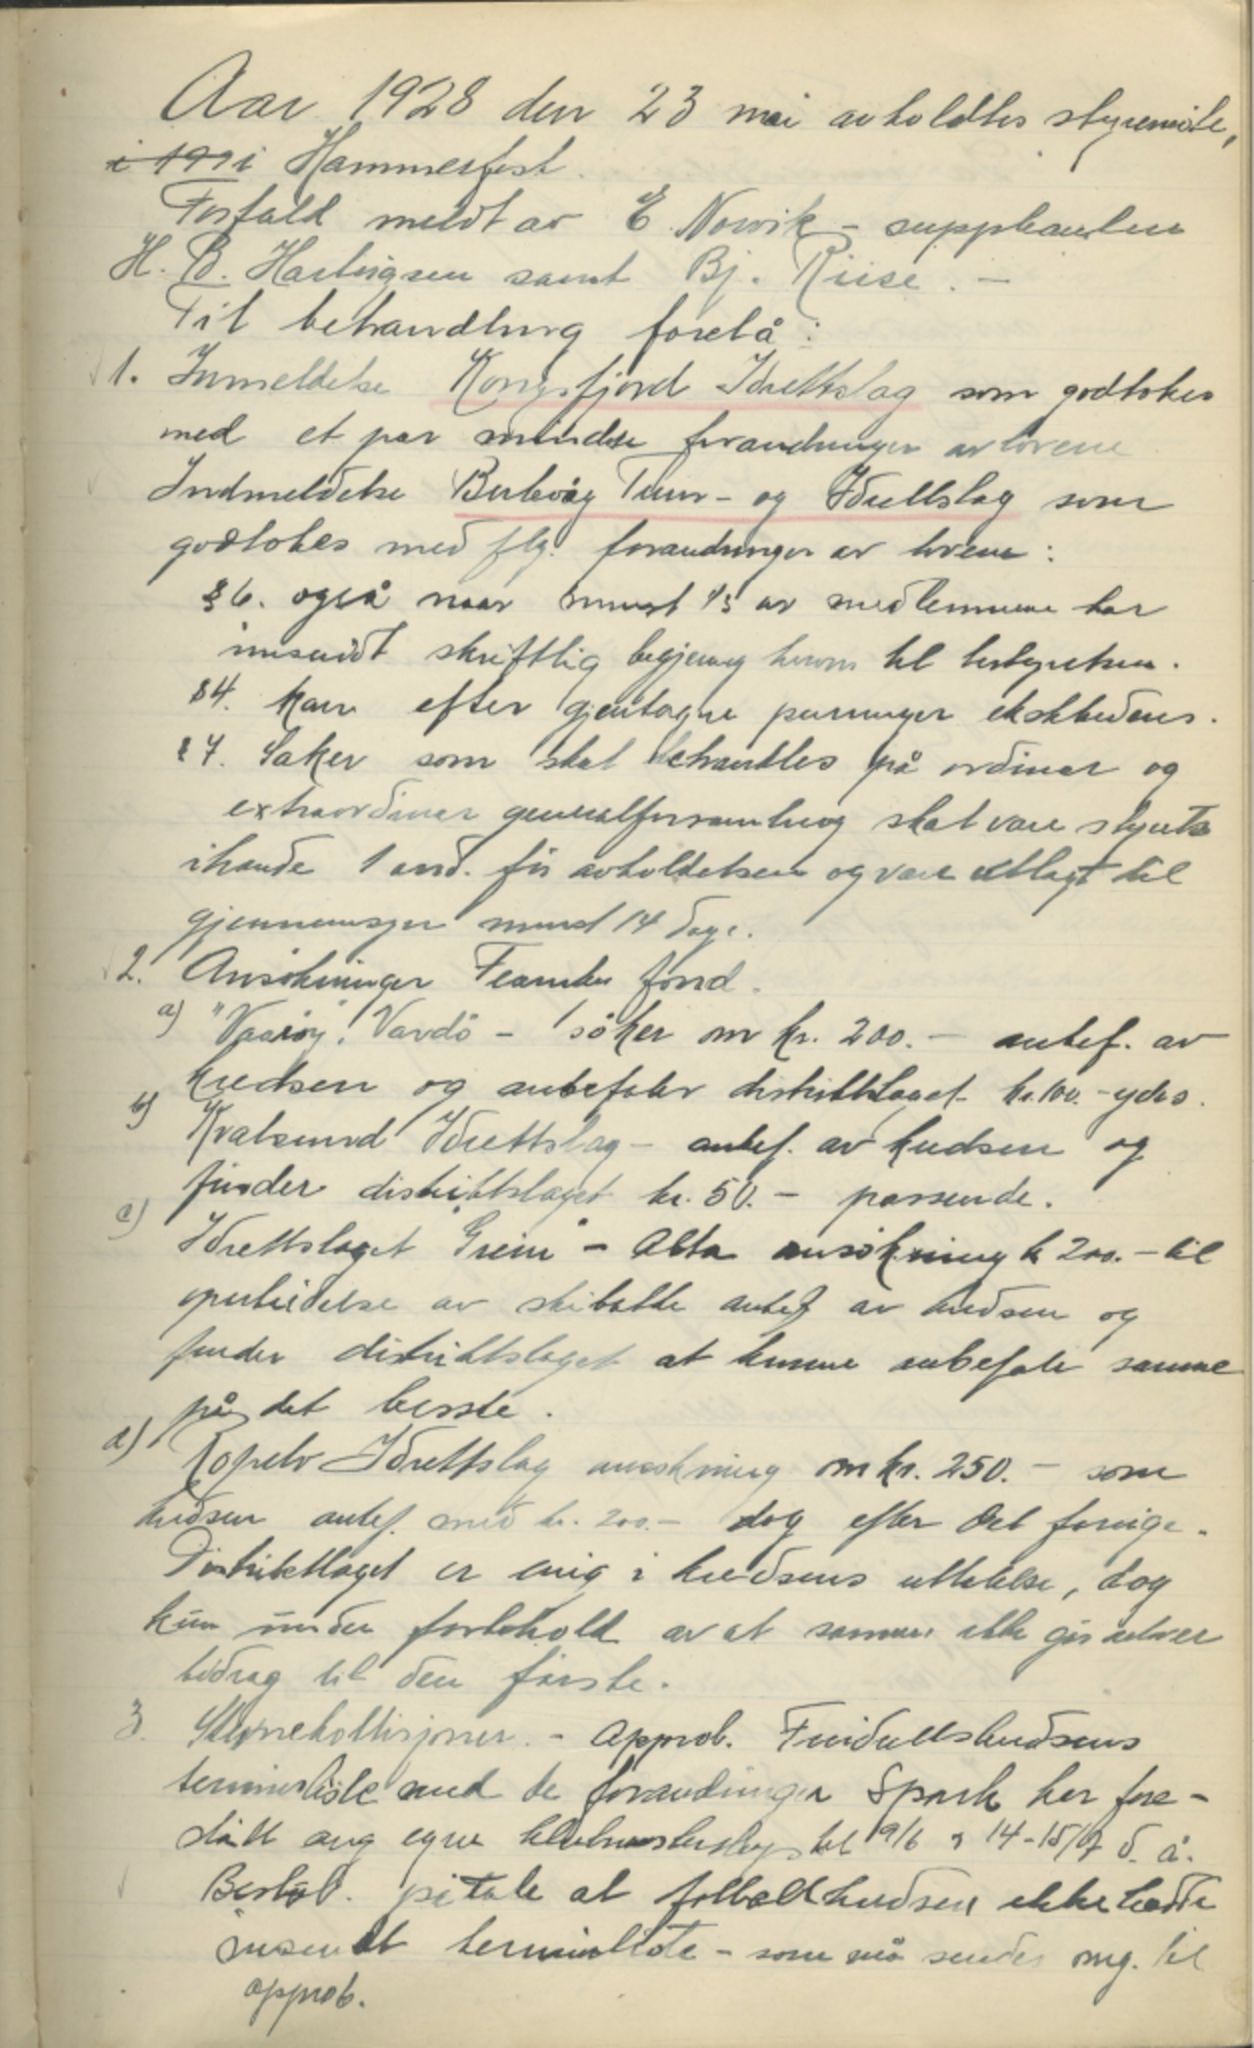 Aar 1928 den 23 mai avholdtes styremöte,
i 199i Hammerfest.
Forfald meldt av E. Norvik - suppleanten
H. B. Hartvigsen samt Bj. Riise. -
Til behandling forelå:
1. Inmeldelse Kongsfjord Idrettslag som godtokes
med et par mindre forandringer av lovene
Indmeldelse Berlevåg Turn- og Idrettslag som
godtokes med flg. forandringer av lovene:
§ 6. også naar minst 1/3 av medlemmene har
insendt skriftlig begjæring herom til bestyrelsen.
§4. kan efter gjentagne purringer ekskluderes.
§ 7. Saker som skal behandles på ordinær og
extraordinær generalforsamling skal være styrets
ihænde 1 mnd. før avholdelsen og være utlagt til
gjennemsyn minst 14 dage.
2. Ansökninger Fearnley fond.
a) "Vaarøy", Vardö - söker om kr. 200.- anbef. av
kredsen og anbefaler distriktslaget kr. 100.- ydes.
b) Kvalsund Idrettslag - anbef. av kredsen og
finder distriktslaget kr. 50.- passende.
c) Idrettslaget "Grein" - Alta ansökning kr 200.- til
oparbeidelse av skibakke anbef av kredsen og
finder distriktslaget at kunne anbefale samme
på det beste.
d) Kopelv Idrettslag ansökning om kr. 250.- som
kredsen anbef. med kr. 200.- dog efter det forrige.
Distriktslaget er enig i kredsens uttalelse, dog
kun under forbehold av at samme ikke gis utover
bidrag til den første.
3. Stevnekollisjoner. - Approb. Friidrettskredsens
terminliste med de forandringer Spark har fore-
slått ang egne klubmesterskap til 9/6 og 14-15/7 d. å.
Beslöt påtale at fotballkredsen ikke hadde
insendt terminliste - som må sendes omg. til
approb.